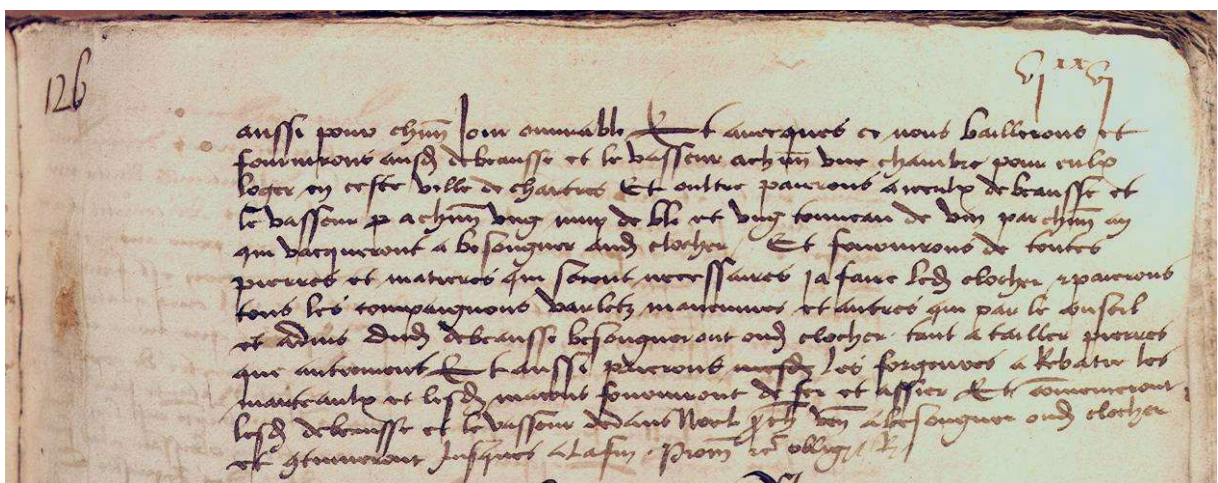 126
vi xx vi
aussi pour chūn jour ouvrable Et avecques ce nous baillerons et
fournirons ausd debeausse et le vasseur achūn une chambre pour eulx
loger en ceste ville de chartres Et oultre paierons a iceulx debeausse et
le vasseur p achūn ung muy de ble et ung tonneau de vin par chūn an
qui vacqueront a besongner aud clocher Et fournirons de toutes
pierres et matieres qui seront necessaires a faire led clocher paierons
tous les compaignons varletz manouvres et autres qui par le conseil
et advis dud debeausse besongneront oud clocher tant a tailler pierres
que autrement Et aussi paierons les forgeures a Rebatre les
marteaulx et lesd macons fourniront de fer et assier Et cōmenceront
lesd debeausse et le vasseur dedans Noel proch ven a besongner oud clocher
et gtinueront jusques a la fin Prom oblig R